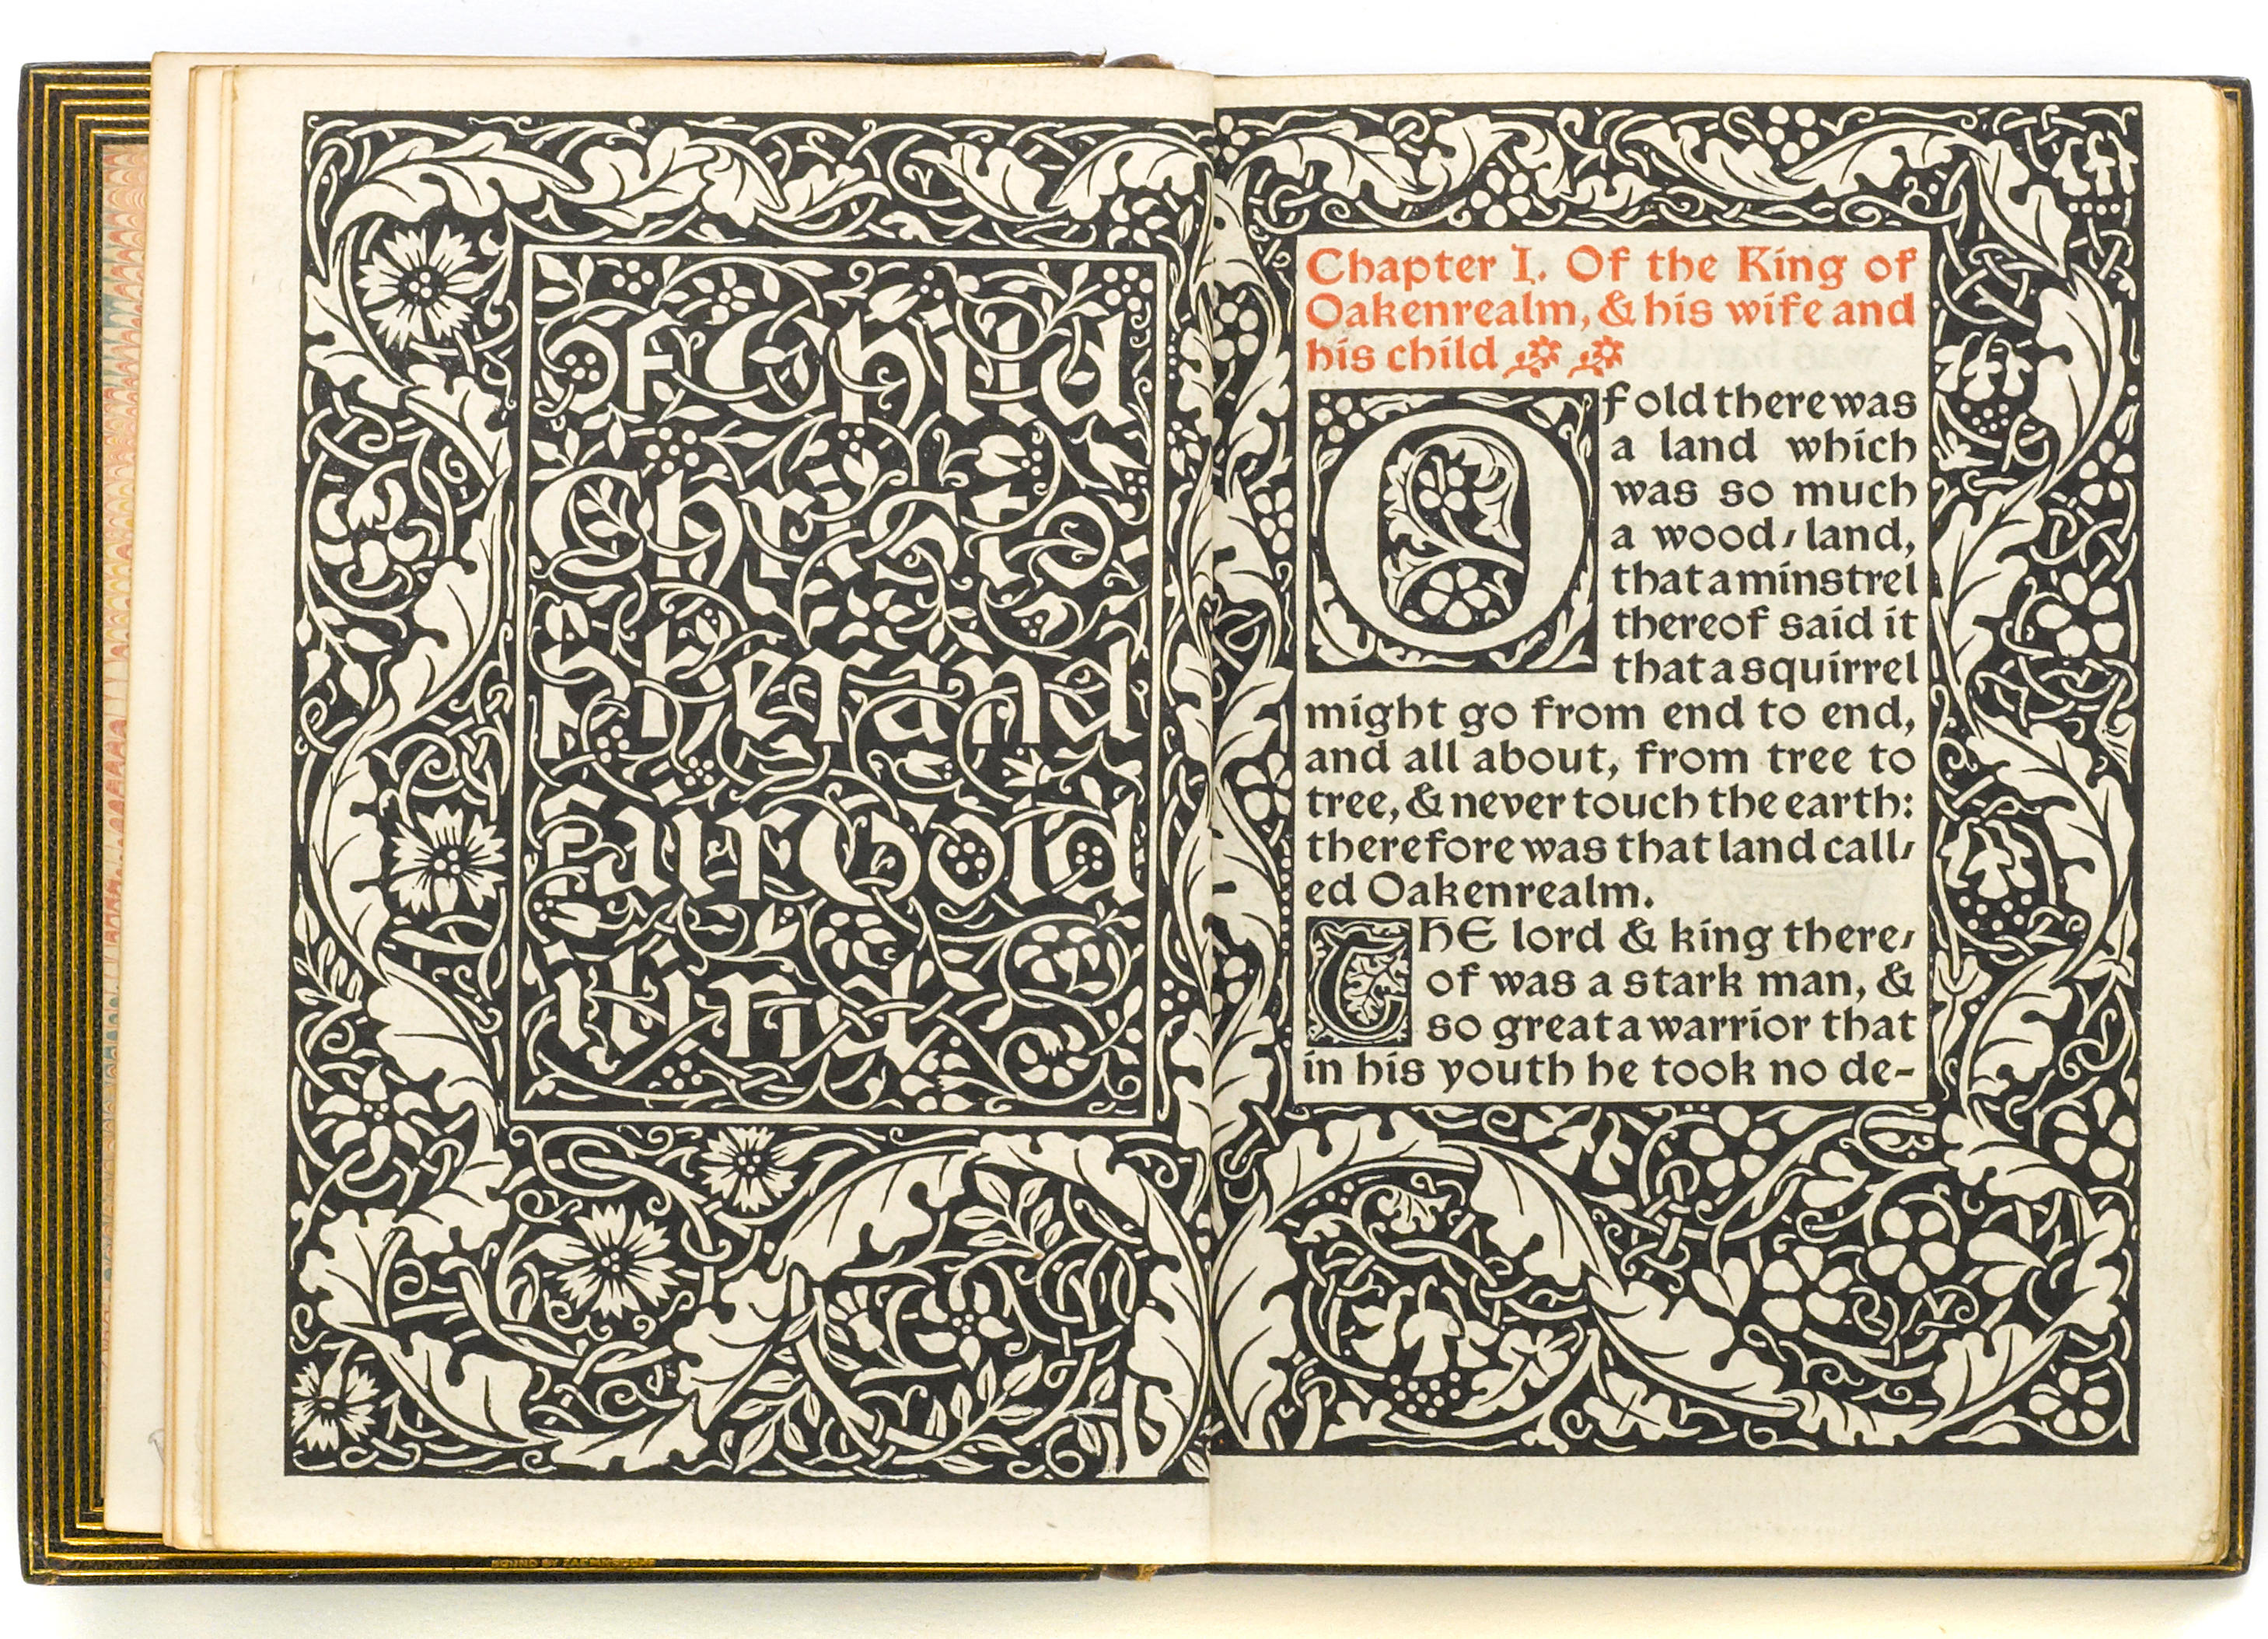 Of Child
Christo
pher and
fair Gold
ilind
Chapter I. Of the King of
Oakenrealm, & his wife and
his child
Of old there was
a land which
was so much
a wood/land,
that a minstrel
thereof said it
that a squirrel
might go from end to end,
and all about, from tree to
tree, & never touch the earth:
therefore was that land call/
ed Oakenrealm.
THE lord & king there/
of was a stark man, &
so great a warrior that
in his youth he took no de-
BOUND BY ZAEHNSDORF